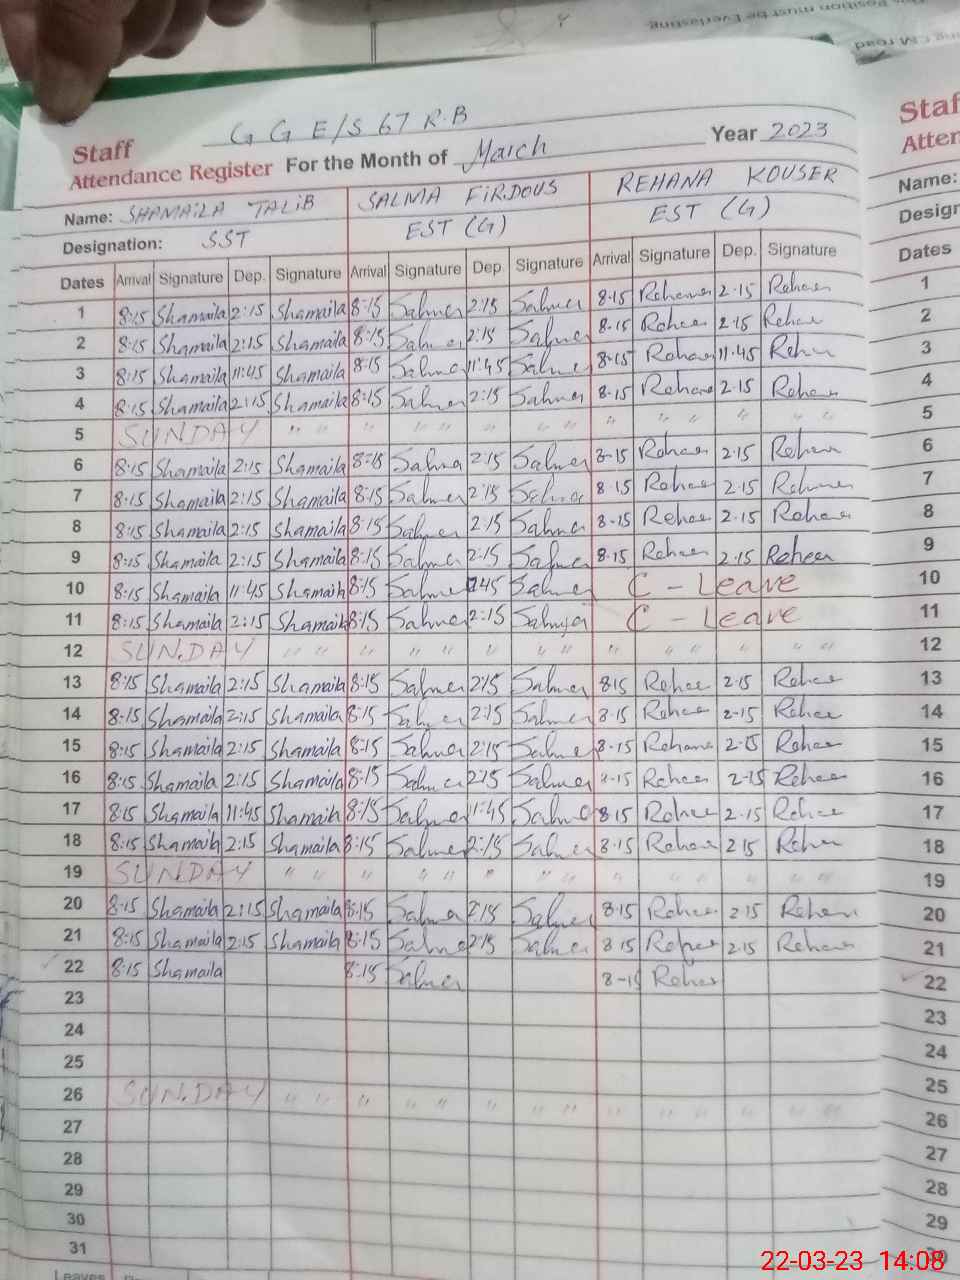 Position must be Everlasting
CM road
G G E/S 67 R.B
Staff
Attendance Register For the Month of March Year 2023
Name: SHAMAILA TALIB SALMA FIRDOUS REHANA KOUSER
Designation: SST EST (G) EST (G)
Dates Arrival Signature Dep. Signature Arrival Signature Dep Signature Arrival Signature Dep. Signature
1 8:15 Shamaila 2:15 Shamaila 8:15 Salma 2:15 Salma 8-15 Rehana 2-15 Rehana
2 8:15 Shamaila 2:15 Shamaila 8:15 Salma 2:15 Salma 8-15 Rehana 2-15 Rehana
3 8:15 Shamaila 11:45 Shamaila 8:15 Salma 11:45 Salma 8-15 Rehana 11-45 Rehana
4 8:15 Shamaila 2:15 Shamaila 8:15 Salma 2:15 Salma 8-15 Rehana 2-15 Rehana
5 SUNDAY " " " " " " " " " " " " " " "
6 8:15 Shamaila 2:15 Shamaila 8:15 Salma 2:15 Salma 8-15 Rehana 2-15 Rehana
7 8:15 Shamaila 2:15 Shamaila 8:15 Salma 2:15 Salma 8-15 Rehana 2-15 Rehana
8 8:15 Shamaila 2:15 Shamaila 8:15 Salma 2:15 Salma 8-15 Rehana 2-15 Rehana
9 8:15 Shamaila 2:15 Shamaila 8:15 Salma 2:15 Salma 8-15 Rehana 2-15 Rehana
10 8:15 Shamaila 11:45 Shamaila 8:15 Salma Salma C - Leave
11 8:15 Shamaila 2:15 Shamaila 8:15 Salma 2:15 Salma C - Leave
12 SUNDAY " " " " " " " " " " " " " " "
13 8:15 Shamaila 2:15 Shamaila 8:15 Salma 2:15 Salma 8-15 Rehana 2-15 Rehana
14 8:15 Shamaila 2:15 Shamaila 8:15 Salma 2:15 Salma 8-15 Rehana 2-15 Rehana
15 8:15 Shamaila 2:15 Shamaila 8:15 Salma 2:15 Salma 8-15 Rehana 2-15 Rehana
16 8:15 Shamaila 2:15 Shamaila 8:15 Salma 2:15 Salma 8-15 Rehana 2-15 Rehana
17 8:15 Shamaila 11:45 Shamaila 8:15 Salma 11:45 Salma 8-15 Rehana 2-15 Rehana
18 8:15 Shamaila 2:15 Shamaila 8:15 Salma 2:15 Salma 8-15 Rehana 2-15 Rehana
19 SUNDAY " " " " " " " " " " " " " " "
20 8:15 Shamaila 2:15 Shamaila 8:15 Salma 2:15 Salma 8-15 Rehana 2-15 Rehana
21 8:15 Shamaila 2:15 Shamaila 8:15 Salma 2:15 Salma 8-15 Rehana 2-15 Rehana
22 8:15 Shamaila 8:15 Salma 8-15 Rehana
23
24
25
26 SUNDAY " " " " " " " " " " " " " " "
27
28
29
30
31
Leaves
Staf
Atten
Name:
Design
Dates
1
2
3
4
5
6
7
8
9
10
11
12
13
14
15
16
17
18
19
20
21
22
23
24
25
26
27
28
29
30
22-03-23 14:08